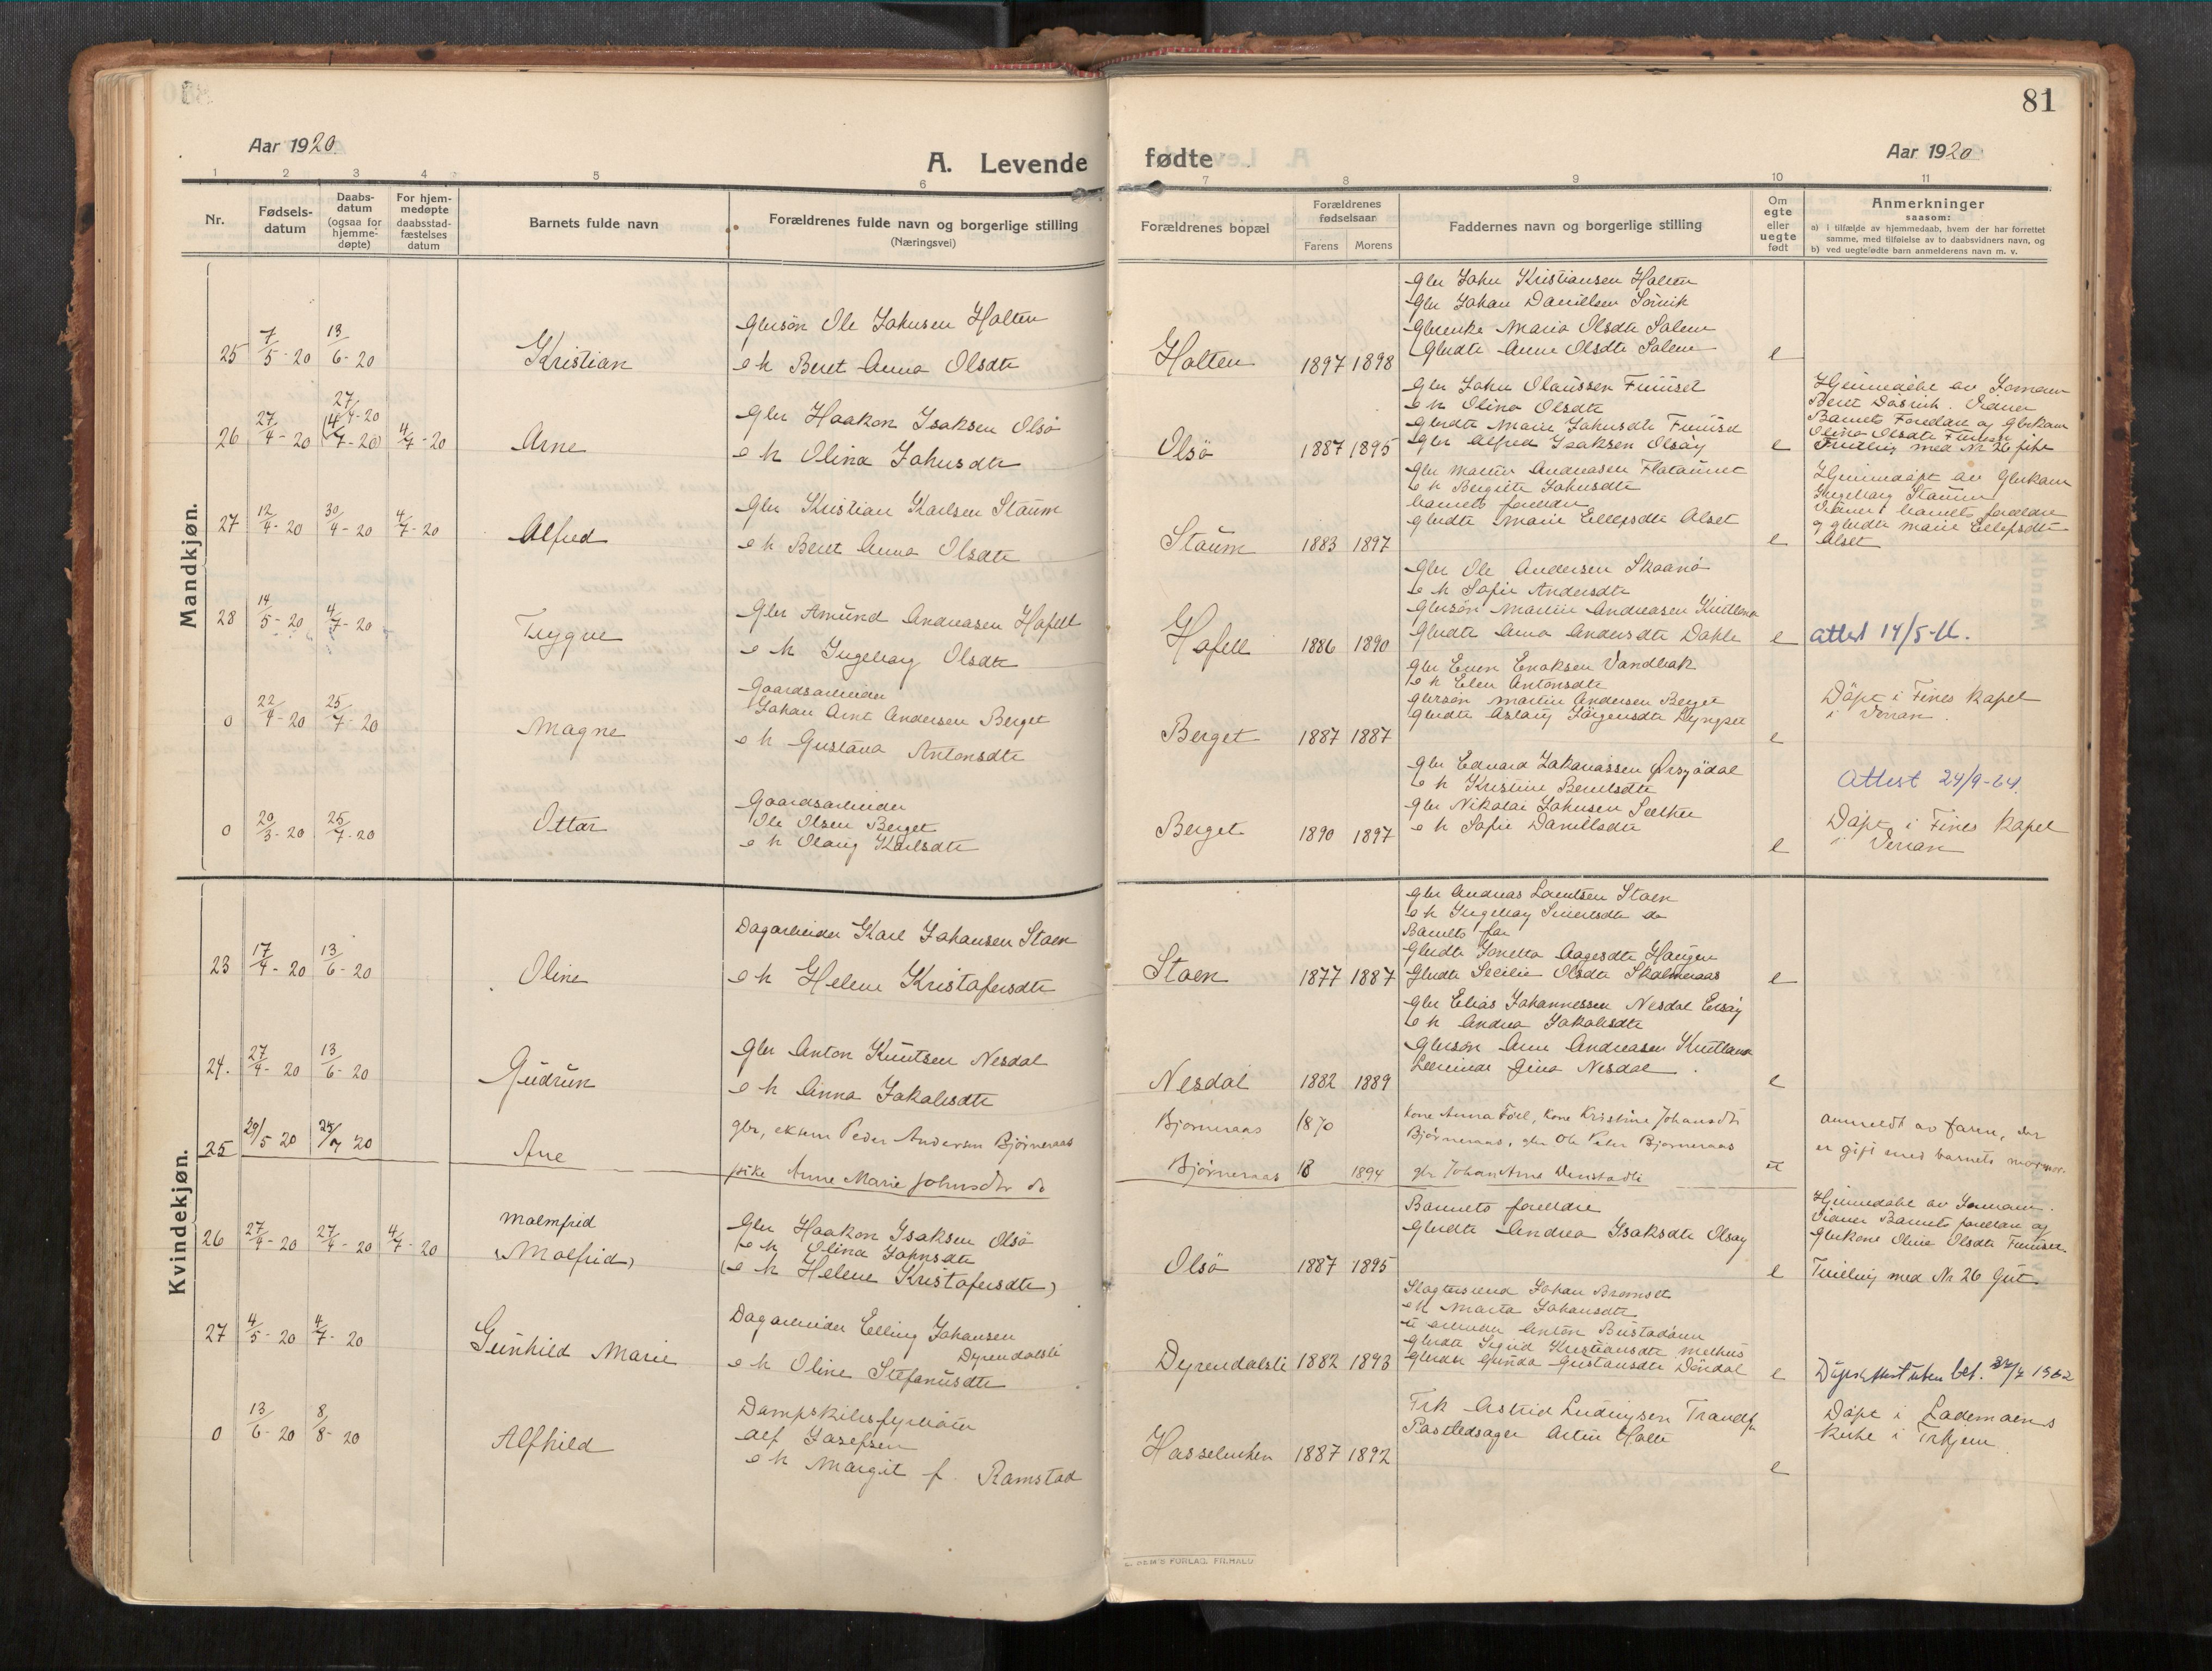 81
Aar 1920
A. Levende
fødte
Aar 1920
1 2 3 4 5 6 7 8 9 10 11
Nr.
Fødsels-
datum
Daabs-
datum
(ogsaa for
hjemme-
døpte)
For hjem-
medøpte
daabsstad-
fæstelses
datum
Barnets fulde navn
Forældrenes fulde navn og borgerlige stilling
(Næringsvei)
Forældrenes bopæl
Forældrenes
fødselsaar
Farens Morens
Faddernes navn og borgerlige stilling
Om
egte
eller
uegte
født
Anmerkninger
saasom:
a) i tilfælde av hjemmedaab, hvem der har forrettet
samme, med tilføielse av to daabsvidners navn, og
b) ved uegte fødte barn anmelderens navn m. v.
Mandkjøn.
25 7/5-20 13/6-20
Kristian
Gbrsøn Ole Johnsen Holten
e h Beret Anna Olsdtr
Holten 1897 1898
Gbr John Kristiansen Holten
Gbr Johan Daniellsen Sörvik
Gbrenke Maria Olsdtr Salem
Gbrdtr Anne Olsdtr Salem
e
26 27/4-20 27/4-20 (4/7-20) 4/7-20
Arne
Gbr Haakon Isaksen Olsö
e h Olina Johnsdtr
Olsö 1887 1895
Gbr John Olaussen
e h Olina Olsdtr
Gbrdtr Marie Johnsdtr
Gbr Alfred Isaksen Olsöy
e
Hjemmedøbt av Jordmor
Beret Vidner
Barnets Foreldre og Gbrkone
Olina Olsdtr
Tvilling med Nr 26 pike
27 12/4-20 30/4-20 4/7-20
Alfred
Gbr Kristian Karlsen Staum
e h Beret Anna Olsdtr
Staum 1883 1897
Gbr Martin Andreasen
e h Bergitte Johnsdtr
barnets foreldre
gbrdtr Marie Ellefsdtr Alset
e
Hjemmedøpt av Gbrkone
Ingeborg Staum
Vidner: barnets foreldre
og gbrdtr Marie Ellefsdtr
Alset
28 14/5-20 4/7-20
Trygve
Gbr Amund Andreasen Hofell
e h Ingeborg Olsdtr
Hofell 1886 1890
Gbr Ole Andersen Skaanö
e h Sofie Andersdtr
Gbrsøn Martin Andreasen
Gbrdtr Anna Andersdtr Dahle
e attest 14/5-
0 22/4-20 25/7-20
Magne
Gaardsarbeider
Johan Arnt Andersen Berget
e h Gustava Antonsdtr
Berget 1887 1887
Gbr Even Enoksen
e h Elen Antonsdtr
Gbrsøn Martin Andersen Berget
Gbrdtr Aslaug Jörgensdtr
e
Döpt i Fines Kapel
i Verran.
0 20/3-20 25/7-20
Ottar
Gaardsarbeider
Ole Olsen Berget
e h Olaug Karlsdtr
Berget 1890 1897
Gbr Edvard Zakariassen
e h Kristine Berntsdtr
Gbr Nikolai Johnsen Sæther
e h Sofie Daniellsdtr
e
Attest 24/9-64.
Döpt i Fines Kapel
i Verran
Kvindekjøn.
23 17/4-20 13/6-20
Oline
Dagarbeider Karl Johansen Staen
e h Helene Kristofersdtr
Staen 1877 1887
Gbr Andreas Lorentsen Staen
e h Ingeborg Sivertsdtr do
Barnets far
Gbrdtr Jonetta Aagesdtr Haugen
Gbrdtr Secilie Olsdtr Skalmeraas
e
24. 27/4-20 13/6-20
Gudrun
Gbr Anton Knutsen Nesdal
e h Anna Jakobsdtr
Nesdal 1882 1889
Gbr Elias Johannessen Nesdal
e h Andrea Jakobsdtr
Gbrsøn Arne Andreasen
Lærerinde Gina Nesdal.
e
25 29/5 20 25/7 20
Ane
gbr, enkem Peder Andersen Bjørneraas
pike Anne Marie Johnsdtr do
Bjørneraas 1870
Bjørneraas 18 1894
kone Anna Föll, kone Kristine Johansdtr
Bjørneraas, gbr Ole Peter Bjørneraas
gbr Johan Arne
u
anmeldt av faren, der
er gift med barnets mormor.
26 27/4-20 27/4-20 4/7-20
Malmfrid
(Molfrid)
Gbr Haakon Isaksen Olsö
e h Olina Johnsdtr
(e h Helene Kristofersdtr)
Olsö 1887 1895
Barnets foreldre
Gbrdtr Andrea Isaksdtr Olsöy
e
Hjemmedøbt av Jordmor.
Vidner Barnets foreldre og
Gbrkone Oline Olsdtr
Tvilling med Nr 26 Gut
27 4/5-20 4/7-20
Gunhild Marie
Dagarbeider Elling Johansen
Dyrendalsli
e h Oline Stefanusdtr
Dyrendalsli 1882 1893
Johan Bremset
e h Marta Johansdtr
Anton
Gbrdtr Sigrid Kristiansdtr Melhus
Gbrdtr Gunda Gustavsdtr
e Døpsattest uten bet. 1962
0 13/6-20 8/8-20
Alfhild
Dampskibsfyrbøter
Alf Josefsen
e h Margit f. Ramstad
1887 1892
Frk Astrid Ludvigsen Trondhj
Artur Holte
e
Döpt i Lademoens
kirke i Trhjem.